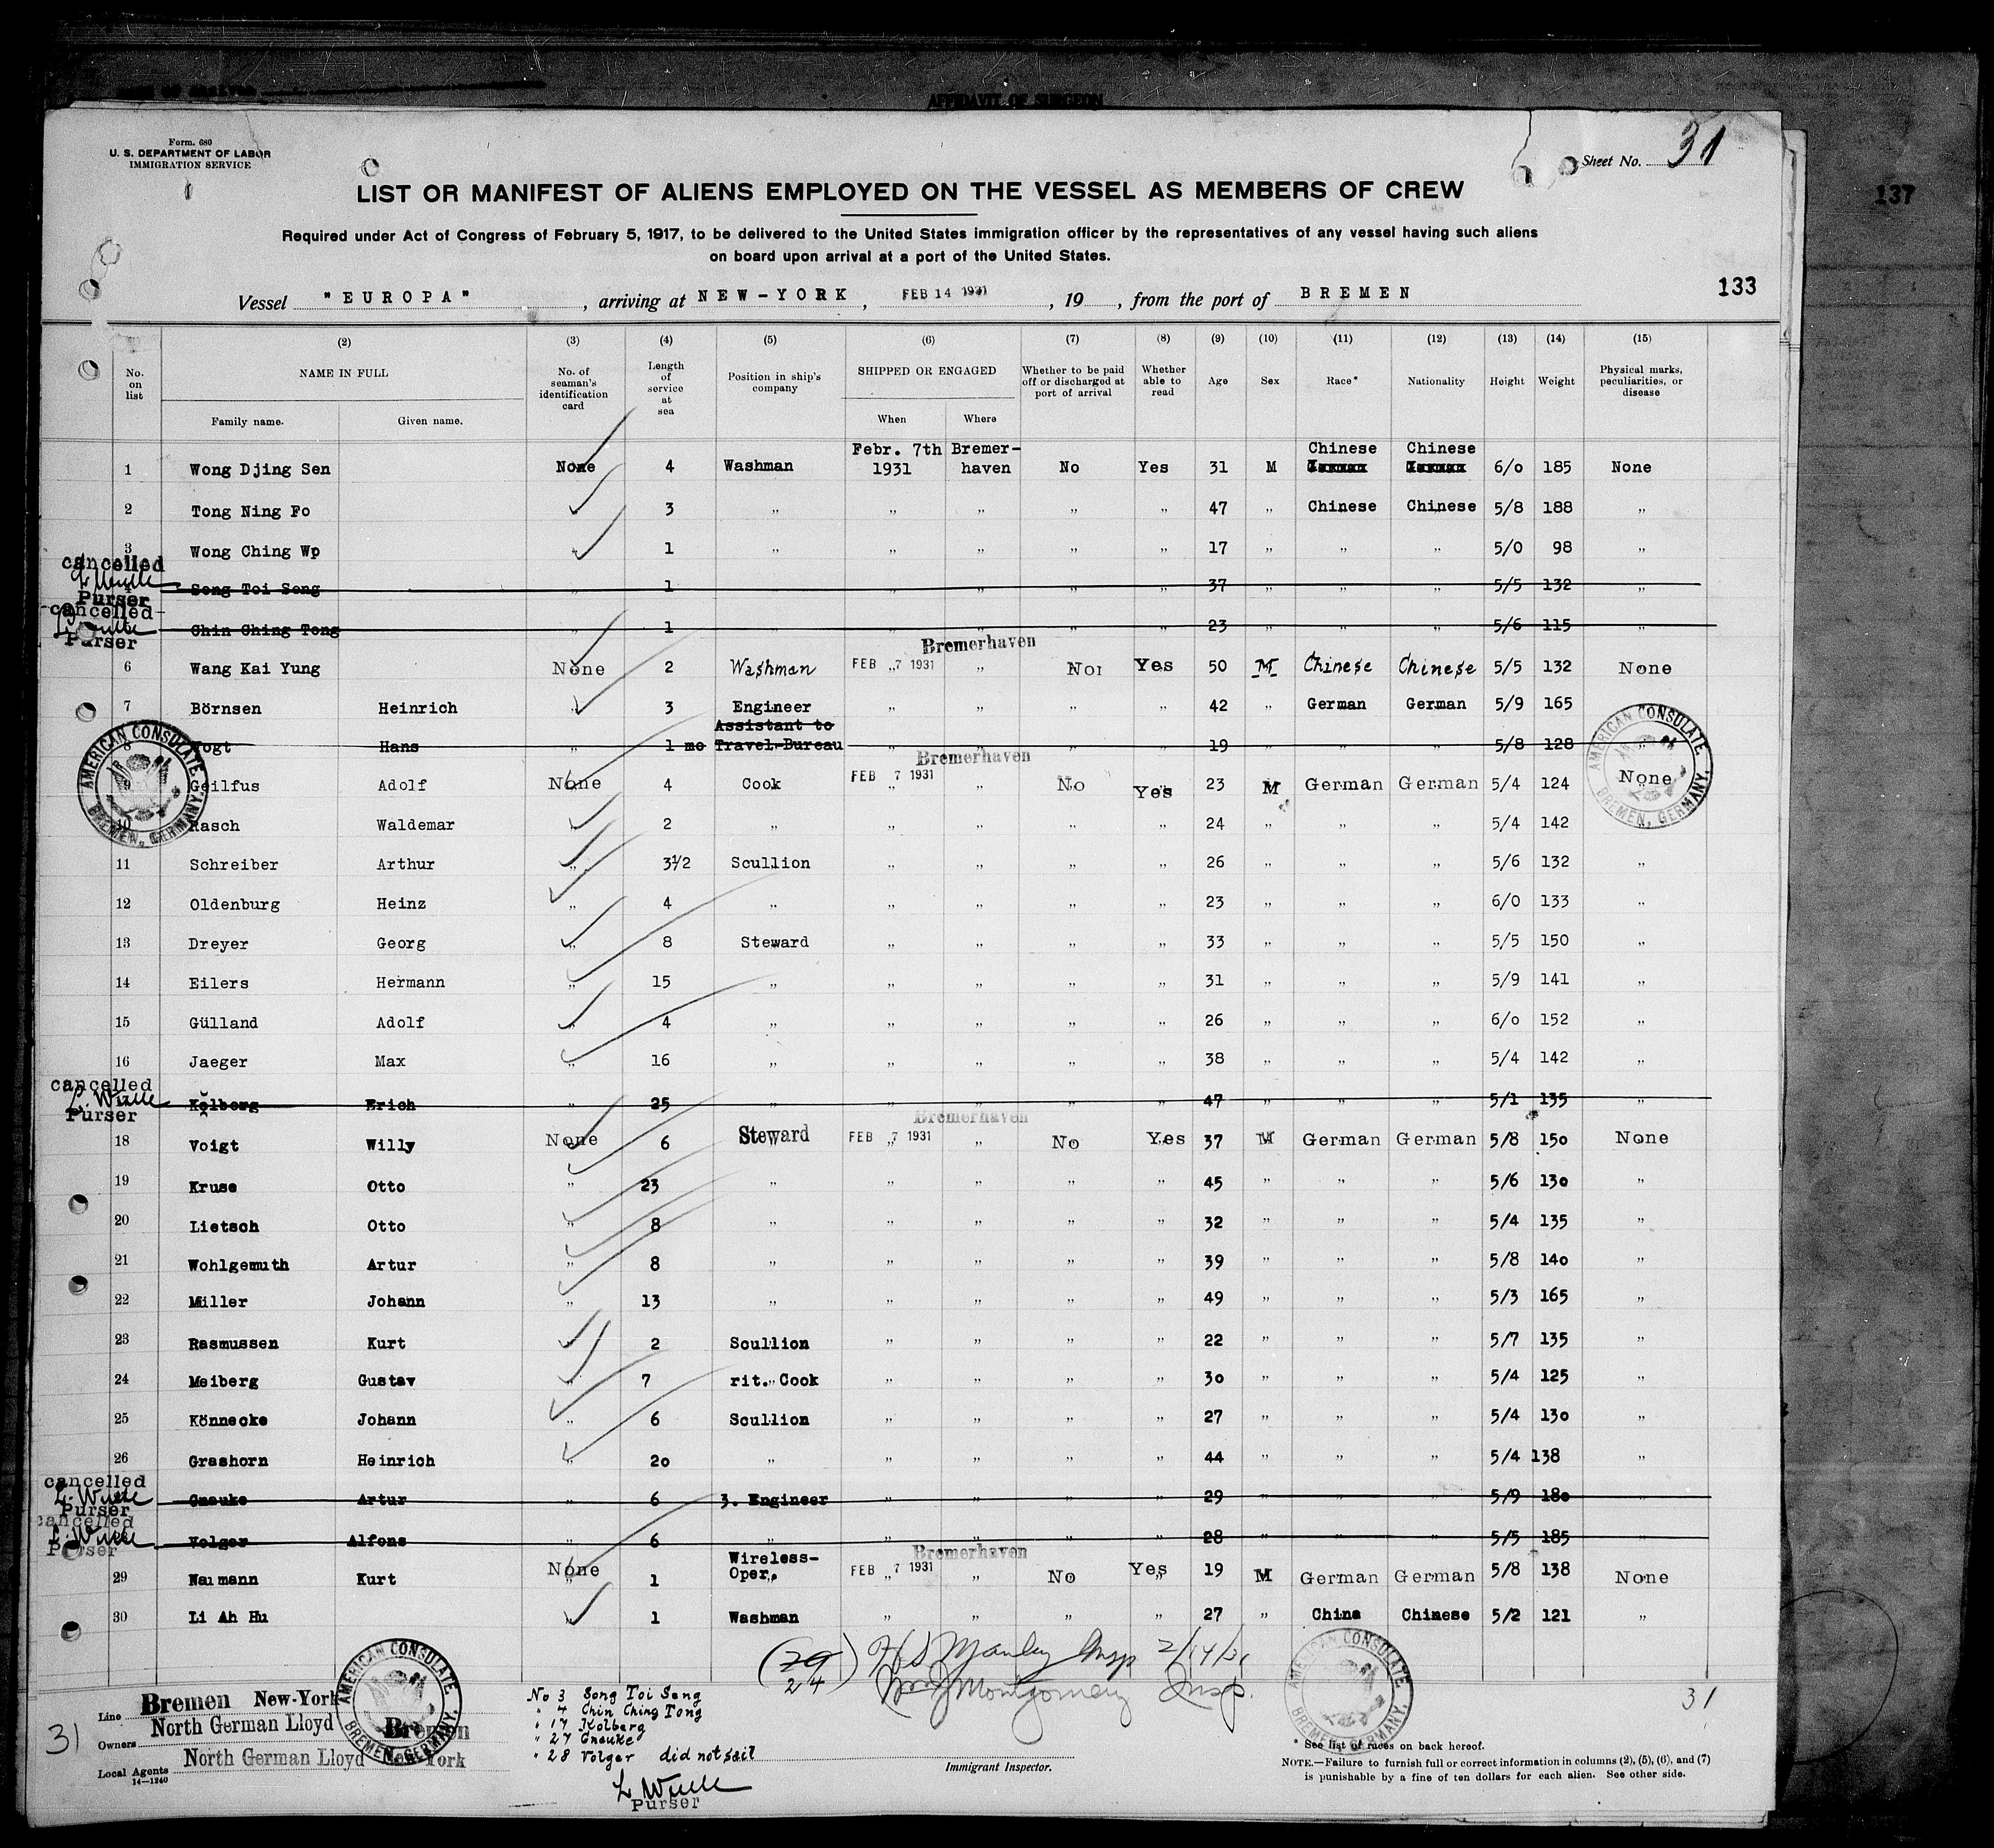 AFFIDAVIT OF SURGEON
Form. 680
U. S. DEPARTMENT OF LABOR
IMMIGRATION SERVICE
Sheet No. 31
137
LIST OR MANIFEST OF ALIENS EMPLOYED ON THE VESSEL AS MEMBERS OF CREW
Required under Act of Congress of February 5, 1917, to be delivered to the United States immigration officer by the representatives of any vessel having such aliens
on board upon arrival at a port of the United States.
133
Vessel "EUROPA", arriving at NEW-YORK, FEB 14 1931, 19 , from the port of BREMEN
(2) (3) (4) (5) (6) (7) (8) (9) (10) (11) (12) (13) (14) (15)
No. on list NAME IN FULL Family name. Given name. No. of seaman's identification card Length of service at sea Position in ship's company SHIPPED OR ENGAGED When Where Whether to be paid off or discharged at port of arrival Whether able to read Age Sex Race* Nationality Height Weight Physical marks, peculiarities, or disease
1 Wong Djing Sen None 4 Washman Febr. 7th 1931 Bremerhaven No Yes 31 M Chinese Chinese 6/0 185 None
2 Tong Ning Fo 3 „ „ „ „ „ 47 „ Chinese Chinese 5/8 188 „
3 Wong Ching Wp „ 1 „ „ „ „ „ 17 „ „ „ 5/0 98 „
cancelled
L Wulle
Purser
Song Toi Seng „ 1 „ „ „ „ „ 37 „ „ „ 5/5 132 „
cancelled
L. Wulle
Purser
Chin Ching Tong „ 1 „ „ „ „ „ 23 „ „ „ 5/6 115 „
6 Wang Kai Yung None 2 Washman FEB 7 1931 Bremerhaven No Yes 50 M Chinese Chinese 5/5 132 None
7 Börnsen Heinrich „ 3 Engineer „ „ „ „ 42 „ German German 5/9 165
8 Vogt Hans „ 1 mo Assistant to Travel-Bureau „ „ „ „ 19 „ „ „ 5/8 128 „
9 Geilfus Adolf None 4 Cook FEB 7 1931 Bremerhaven No Yes 23 M German German 5/4 124 None
10 Rasch Waldemar „ 2 „ „ „ „ „ 24 „ „ „ 5/4 142 „
11 Schreiber Arthur „ 3 1/2 Scullion „ „ „ „ 26 „ „ „ 5/6 132 „
12 Oldenburg Heinz „ 4 „ „ „ „ „ 23 „ „ „ 6/0 133 „
13 Dreyer Georg „ 8 Steward „ „ „ „ 33 „ „ „ 5/5 150 „
14 Eilers Hermann „ 15 „ „ „ „ „ 31 „ „ „ 5/9 141 „
15 Gülland Adolf „ 4 „ „ „ „ „ 26 „ „ „ 6/0 152 „
16 Jaeger Max „ 16 „ „ „ „ „ 38 „ „ „ 5/4 142 „
cancelled
L. Wulle
Purser
Kolberg Erich „ 25 „ „ „ „ „ 47 „ „ „ 5/1 135 „
18 Voigt Willy None 6 Steward FEB 7 1931 Bremerhaven No Yes 37 M German German 5/8 150 None
19 Kruse Otto „ 23 „ „ „ „ „ 45 „ „ „ 5/6 130 „
20 Lietsch Otto „ 8 „ „ „ „ „ 32 „ „ „ 5/4 135 „
21 Wohlgemuth Artur „ 8 „ „ „ „ „ 39 „ „ „ 5/8 140 „
22 Miller Johann „ 13 „ „ „ „ „ 49 „ „ „ 5/3 165 „
23 Rasmussen Kurt „ 2 Scullion „ „ „ „ 22 „ „ „ 5/7 135 „
24 Meiberg Gustav „ 7 rit. Cook „ „ „ „ 30 „ „ „ 5/4 125 „
25 Könnecke Johann „ 6 Scullion „ „ „ „ 27 „ „ „ 5/4 130 „
26 Grashorn Heinrich „ 20 „ „ „ „ „ 44 „ „ „ 5/4 138 „
cancelled
L. Wulle
Purser
Gnauke Artur „ 6 3. Engineer „ „ „ „ 29 „ „ „ 5/9 180 „
cancelled
L. Wulle
Purser
Volger Alfons „ 6 „ „ „ „ „ 28 „ „ „ 5/5 185 „
29 Naumann Kurt None 1 Wireless-Oper. FEB 7 1931 Bremerhaven No Yes 19 M German German 5/8 138 None
30 Li Ah Hu „ 1 Washman „ „ „ „ 27 „ China Chinese 5/2 121 „
AMERICAN CONSULATE BREMEN, GERMANY.
AMERICAN CONSULATE BREMEN, GERMANY.
(29) HS Manley Insp 2/14/31
24 Wm J Montgomery Insp.
AMERICAN CONSULATE BREMEN, GERMANY.
AMERICAN CONSULATE BREMEN, GERMANY.
31
Line Bremen New-York
Owners North German Lloyd Bremen
Local Agents North German Lloyd New York
14—1240
31
No 3 Song Toi Seng
" 4 Chin Ching Tong
" 17 Kolberg
" 27 Gnauke
" 28 Volger did not sail
L Wulle
Purser
Immigrant Inspector.
* See list of races on back hereof.
NOTE.—Failure to furnish full or correct information in columns (2), (5), (6), and (7)
is punishable by a fine of ten dollars for each alien. See other side.